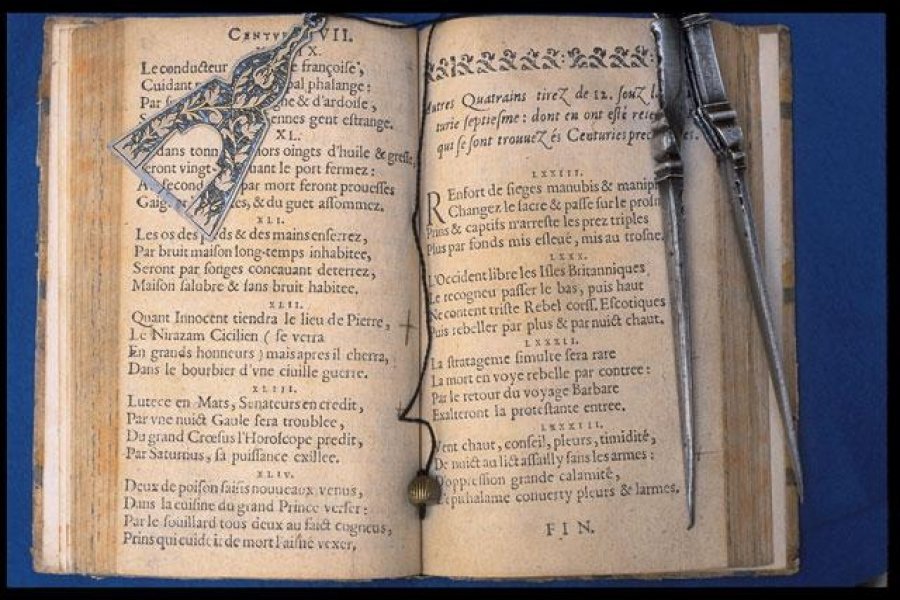 CENTV VII.
X.
Le conducteur françoise,
Cuidant pal phalange:
Par gne & d'ardoise,
ennes gent estrange.
XL.
dans tonn hors oingts d'huile & gresse,
seront vingt- uant le port fermez:
second par mort feront prouesses
Gaig es, & du guet assommez.
XLI.
Les os des pieds & des mains enserrez,
Par bruit maison long-temps inhabitee,
Seront par songes concauant deterrez,
Maison salubre & sans bruit habitee.
XLII.
Quant Innocent tiendra le lieu de Pierre,
Le Nirazam Cicilien ( se verra
En grands honneurs ) mais apres il cherra,
Dans le bourbier d'vne ciuille guerre.
XLIII.
Lutece en Mars, Senateurs en credit,
Par vne nuict Gaule sera troublee,
Du grand Crœsus l'Horoscope predit,
Par Saturnus, sa puissance exillee.
XLIV.
Deux de poison saisis nouueaux venus,
Dans la cuisine du grand Prince verser:
Par le souillard tous deux au faict cogneus,
Prins qui cuidoit de mort l'aisné vexer,
Autres Quatrains tirez de 12. souz l
turie septiesme: dont en ont esté reie
qui se sont trouuez és Centuries prec es.
LXXIII.
REnfort de sieges manubis & manipl
Changez le sacre & passe sur le prosn
Prins & captifs n'arreste les prez triples
Plus par fonds mis esleué, mis au trosne.
LXXX.
L'Occident libre les Isles Britanniques
Le recogneu passer le bas, puis haut
Ne content triste Rebel corss. Escotiques
Puis rebeller par plus & par nuict chaut.
LXXXII.
La stratageme simulte sera rare
La mort en voye rebelle par contree:
Par le retour du voyage Barbare
Exalteront la protestante entree.
LXXXIII.
Vent chaut, conseil, pleurs, timidité,
De nuict au lict assailly sans les armes:
D'oppression grande calamité,
L'epithalame conuerty pleurs & larmes.
FIN.